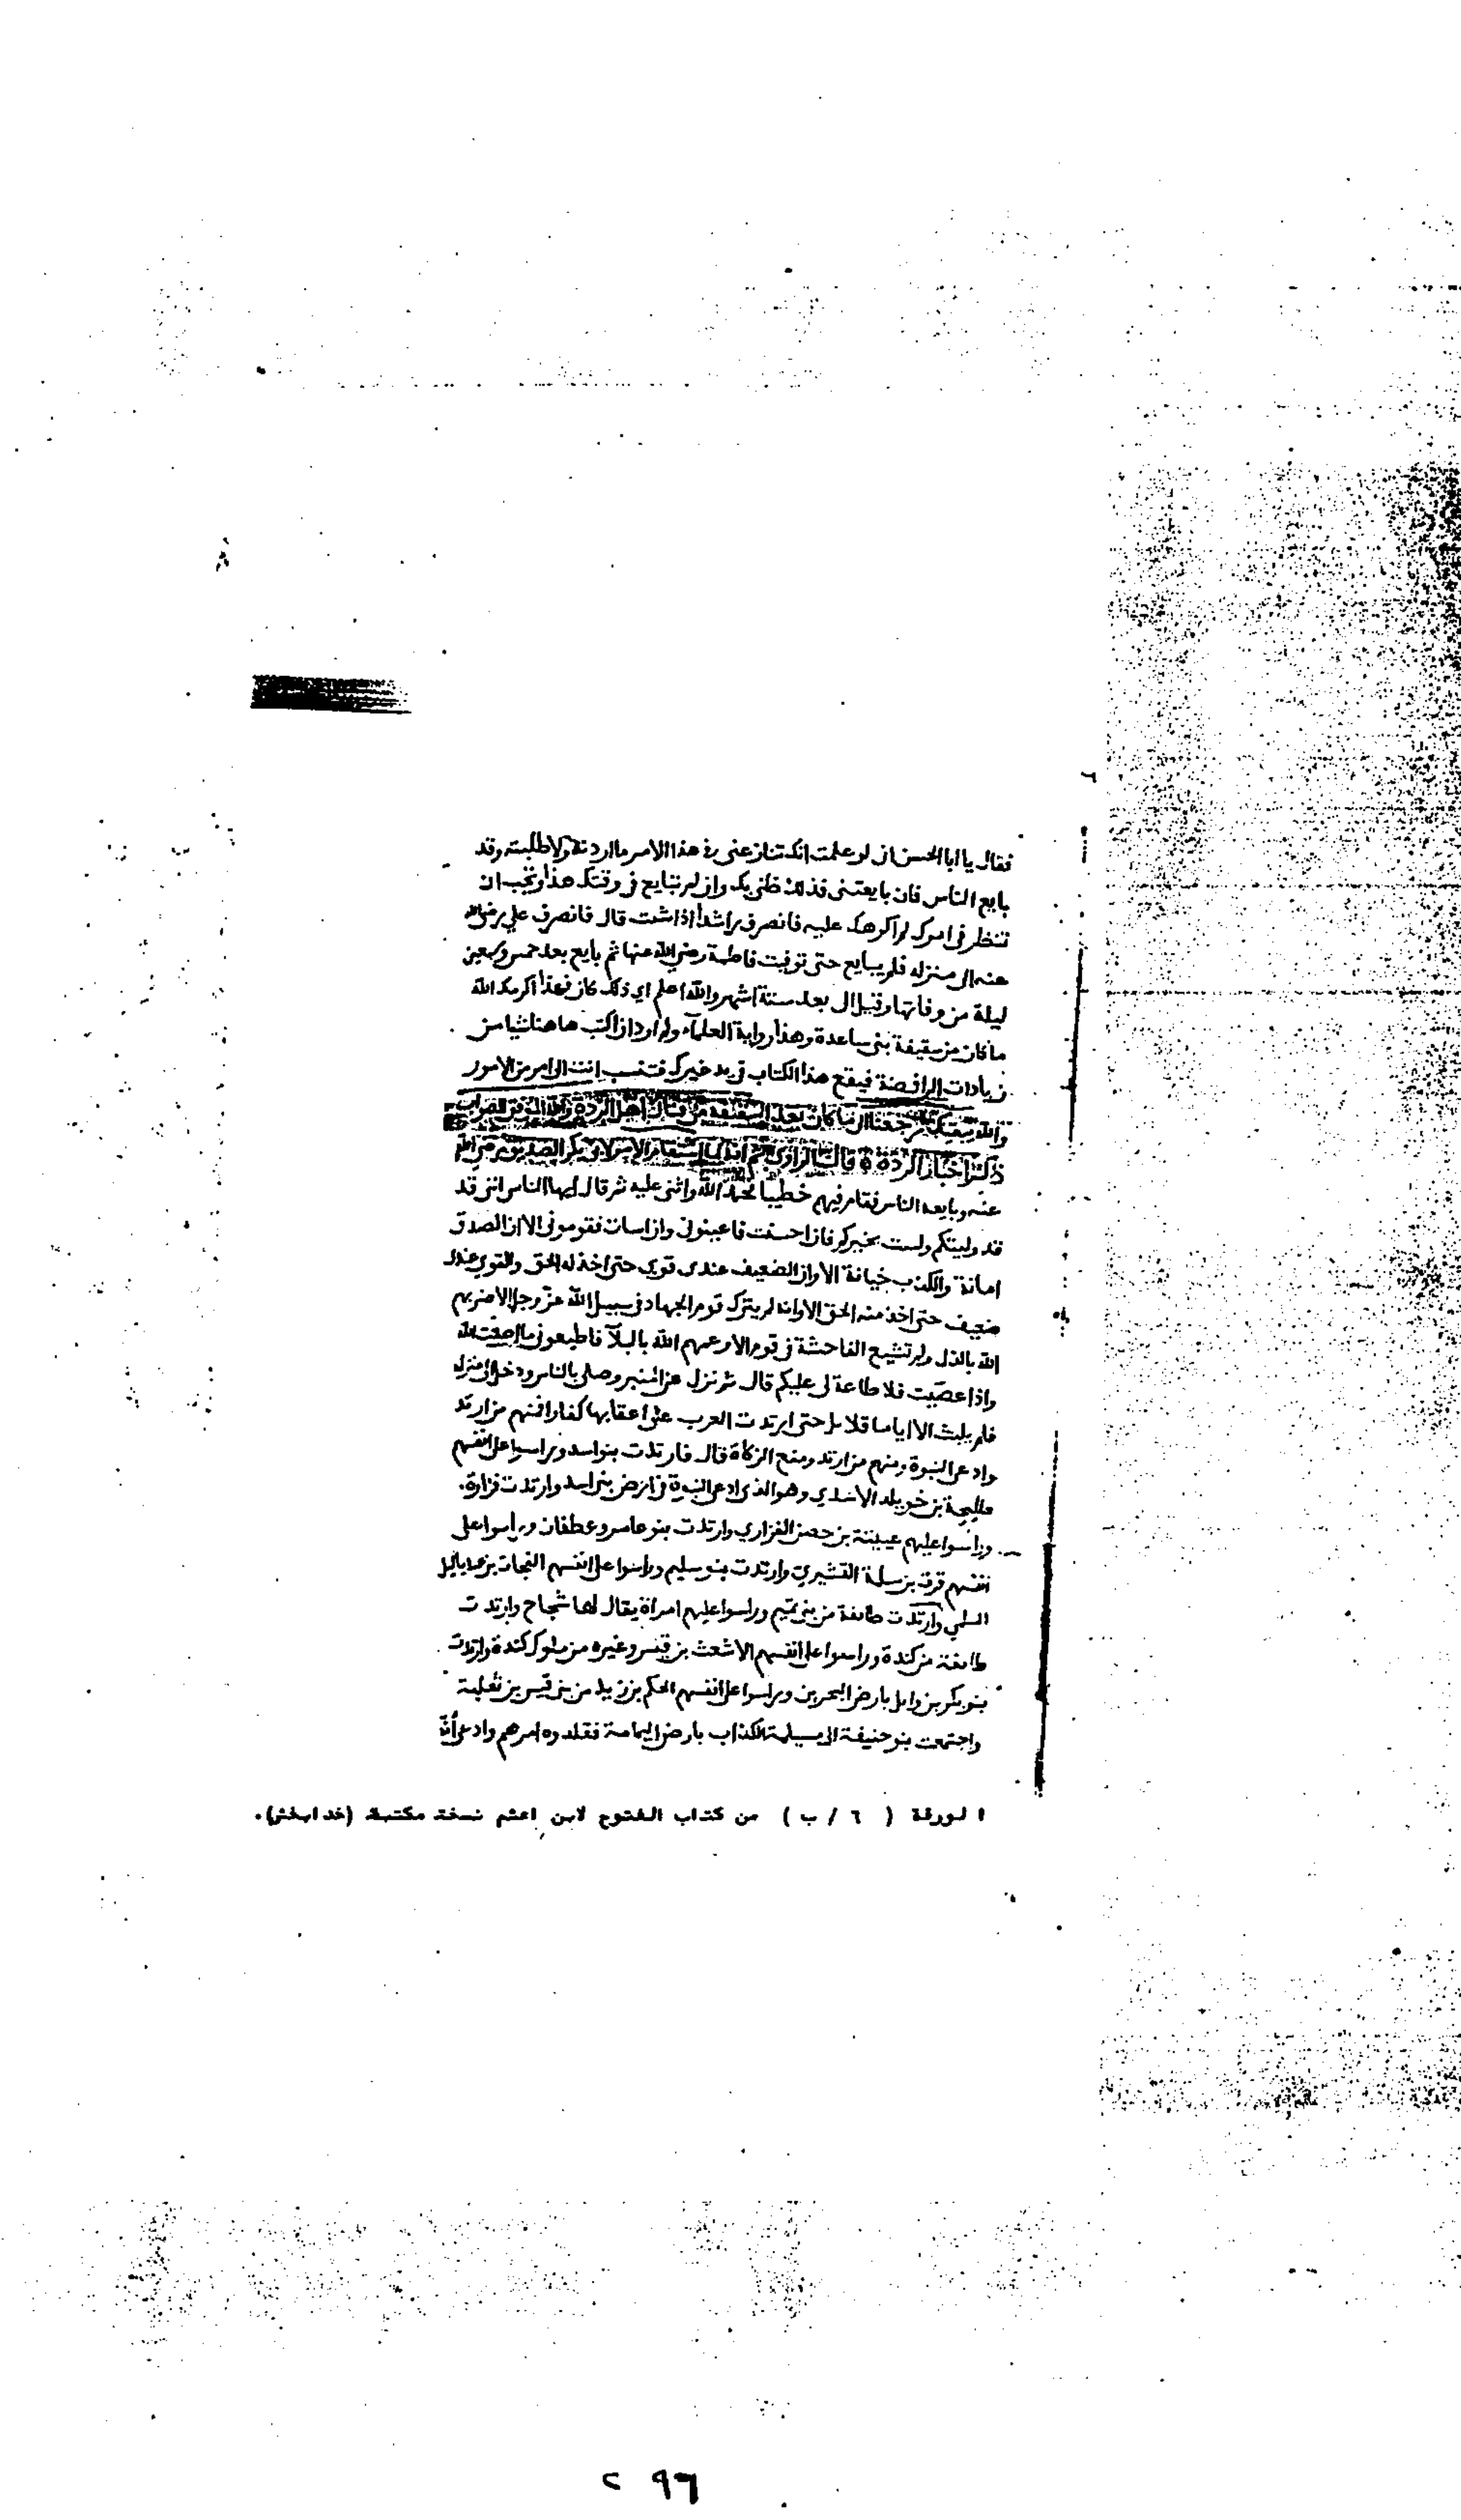 فقال يا ابا الحسن اني لو علمت انك تنازعني في هذا الامر ما اردته ولا طلبته وقد
بايع الناس فان بايعتني فذلك ظني بك وان لم تبايع في وقتك هذا وتحب ان
تنظر في امرك لم اكرهك عليه فانصرف راشدا اذا شئت قال فانصرف علي رضي الله
عنه الى منزله فلم يبايع حتى توفيت فاطمة رضي الله عنها ثم بايع بعد خمس وسبعين
ليلة من وفاتها وقيل بعد ستة اشهر والله اعلم اي ذلك كان فهذا اكرمك الله
ما كان من سقيفة بني ساعدة وهذا رواية العلماء ولم ارد ان اكتب هاهنا شيا من
زيادات الرافضة فيقع هذا الكتاب في يد غيرك فتنسب انت الى امر من الامور
والله يقيك ثم رجعنا الى ما كان بعد السقيفة من قتال اهل الردة والله الموفق للصواب
ذكر اخبار الردة ه قال الراوي ثم انه لما استقام الامر لابي بكر الصديق رضي الله
عنه وبايعه الناس فقام فيهم خطيبا فحمد الله واثنى عليه ثم قال ايها الناس اني قد
قد وليتكم ولست بخيركم فان احسنت فاعينوني وان اسات فقوموني الا ان الصدق
امانة والكذب خيانة الا وان الضعيف عندي قوي حتى اخذ له الحق والقوي عندي
ضعيف حتى اخذ منه الحق الا وانه لم يترك قوم الجهاد في سبيل الله عز وجل الا ضربهم
الله بالذل ولم تشيع الفاحشة في قوم الا وعمهم الله بالبلآ فاطيعوني ما اطعت الله
واذا عصيت فلا طاعة لي عليكم قال ثم نزل عن المنبر وصلى بالناس ودخل الى منزله
فلم يلبث الا اياما قلايل حتى ارتدت العرب على اعقابها كفارا فمنهم من ارتد
وادعى النبوة ومنهم من ارتد ومنع الزكاة قال فارتدت بنو اسد وراسوا على انفسهم
طليحة بن خويلد الاسدي وهو الذي ادعى النبوة في ارض بني اسد وارتدت فزارة
وراسوا عليهم عيينة بن حصن الفزاري وارتدت بنو عامر وغطفان وراسوا على
انفسهم قرة بن سلمة القشيري وارتدت بنو سليم وراسوا على انفسهم الفجاة بن عبد ياليل
السلمي وارتدت طائفة من بني تميم وراسوا عليهم امراة يقال لها سجاح وارتدت
طائفة من كندة وراسوا على انفسهم الاشعث بن قيس وغيره من ملوك كندة وارتدت
بنو بكر بن وايل بارض البحرين وراسوا على انفسهم الحكم بن زيد من بني قيس بن ثعلبة
واجتمعت بنو حنيفة الى مسيلمة الكذاب بارض اليمامة فقلدوه امرهم وادعى انه
الورقة ( ٦ / ب ) من كتاب الفتوح لابن اعثم نسخة مكتبة (خدابخش).
٢٩٦